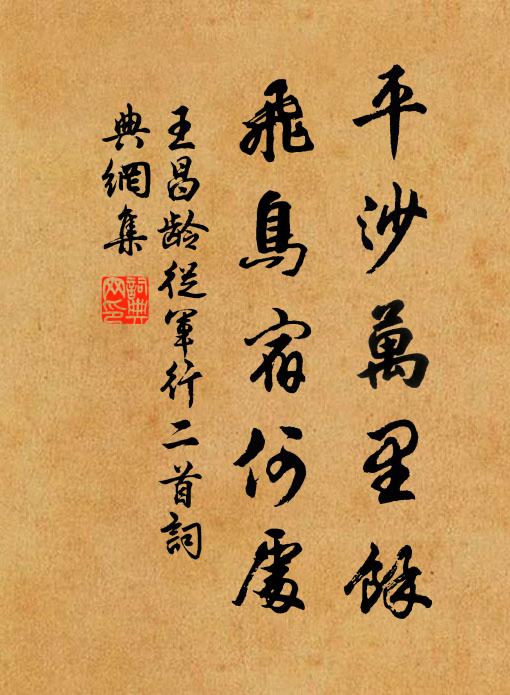 平沙萬里餘
飛鳥宿何處
王昌龄從軍行二首詞
典網集
詞典網印